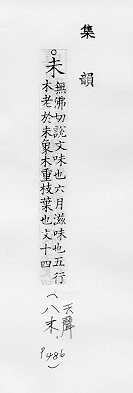 集韻
未
無佛切說文味也六月滋味也五行
木老於未象木重枝葉也文十四
(去聲
八未
P486)